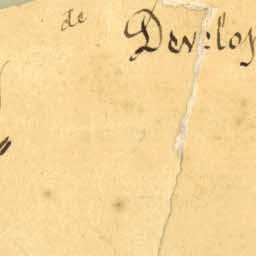 de
Develop